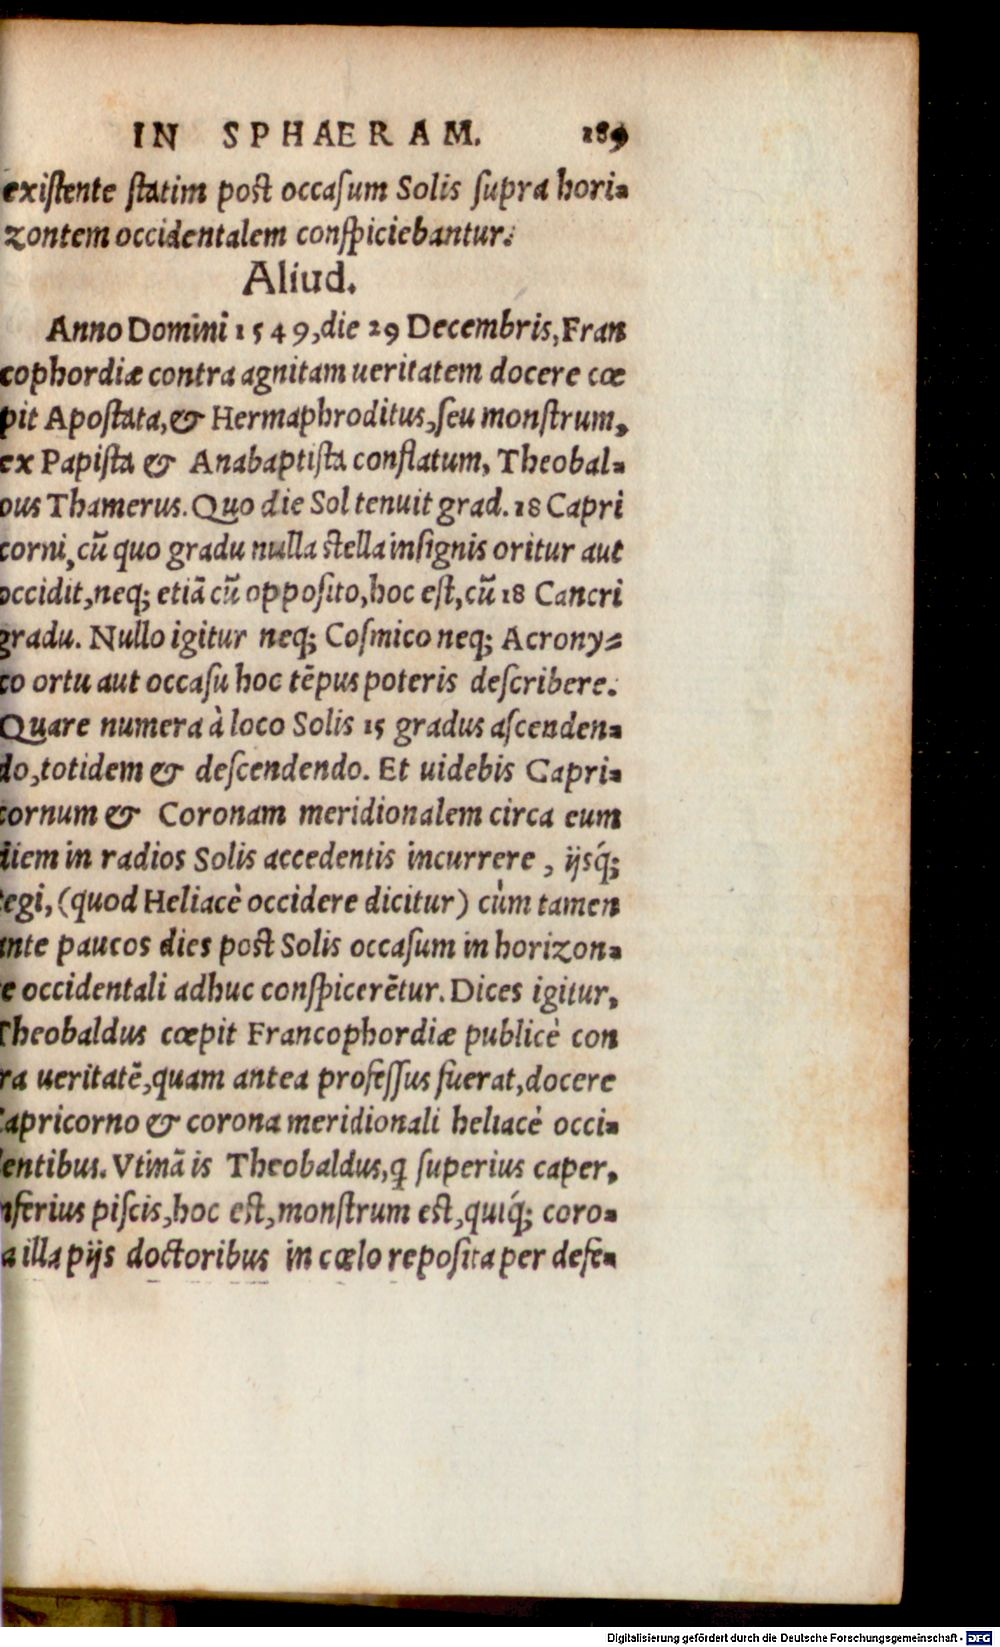 IN SPHAERAM. 189
existente statim post occasum Solis supra hori-
zontem occidentalem conspiciebantur.
Aliud.
Anno Domini 1549, die 29 Decembris, Fran
cophordiæ contra agnitam ueritatem docere cœ
pit Apostata, & Hermaphroditus, seu monstrum,
ex Papista & Anabaptista conflatum, Theobal-
dus Thamerus. Quo die Sol tenuit grad. 18 Capri
corni, cū quo gradu nulla stella insignis oritur aut
occidit, neq; etiā cū opposito, hoc est, cū 18 Cancri
gradu. Nullo igitur neq; Cosmico neq; Acrony-
co ortu aut occasu hoc tēpus poteris describere.
Quare numera à loco Solis 15 gradus ascenden-
do, totidem & descendendo. Et uidebis Capri-
cornum & Coronam meridionalem circa eum
diem in radios Solis accedentis incurrere, ijsq́;
tegi, (quod Heliacè occidere dicitur) cùm tamen
ante paucos dies post Solis occasum in horizon-
te occidentali adhuc conspicerētur. Dices igitur,
Theobaldus cœpit Francophordiæ publicè con
ra ueritatē, quam antea professus fuerat, docere
Capricorno & corona meridionali heliacè occi-
dentibus. Vtinā is Theobaldus, q superius caper,
inferius piscis, hoc est, monstrum est, quiq́; coro-
a illa pijs doctoribus in cœlo reposita per defe-
Digitalisierung gefördert durch die Deutsche Forschungsgemeinschaft - DFG